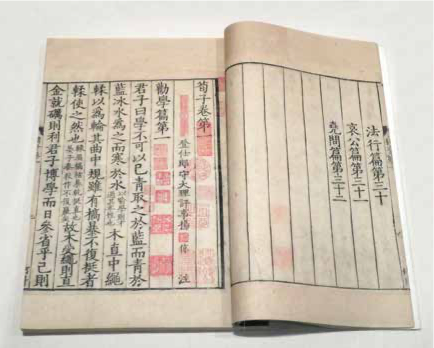 法行篇第三十
哀公篇第三十一
堯問篇第三十二
荀子卷第一
登仕郎守大理評事楊 倞 注
勸學篇第一
君子曰學不可以已青取之於藍而青於
藍冰水為之而寒於水 木直中繩
輮以為輪其曲中規雖有槁暴不復挺者
輮使之然也 故木受繩則直
金就礪則利君子博學而日參省乎己則